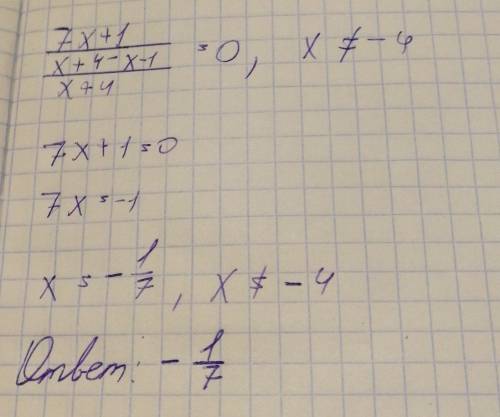 7x+1
x+4-x-1 =0, x ≠ -4
x+4
7x+1=0
7x=-1
x = - 1/7, x ≠ - 4
Ответ: - 1/7